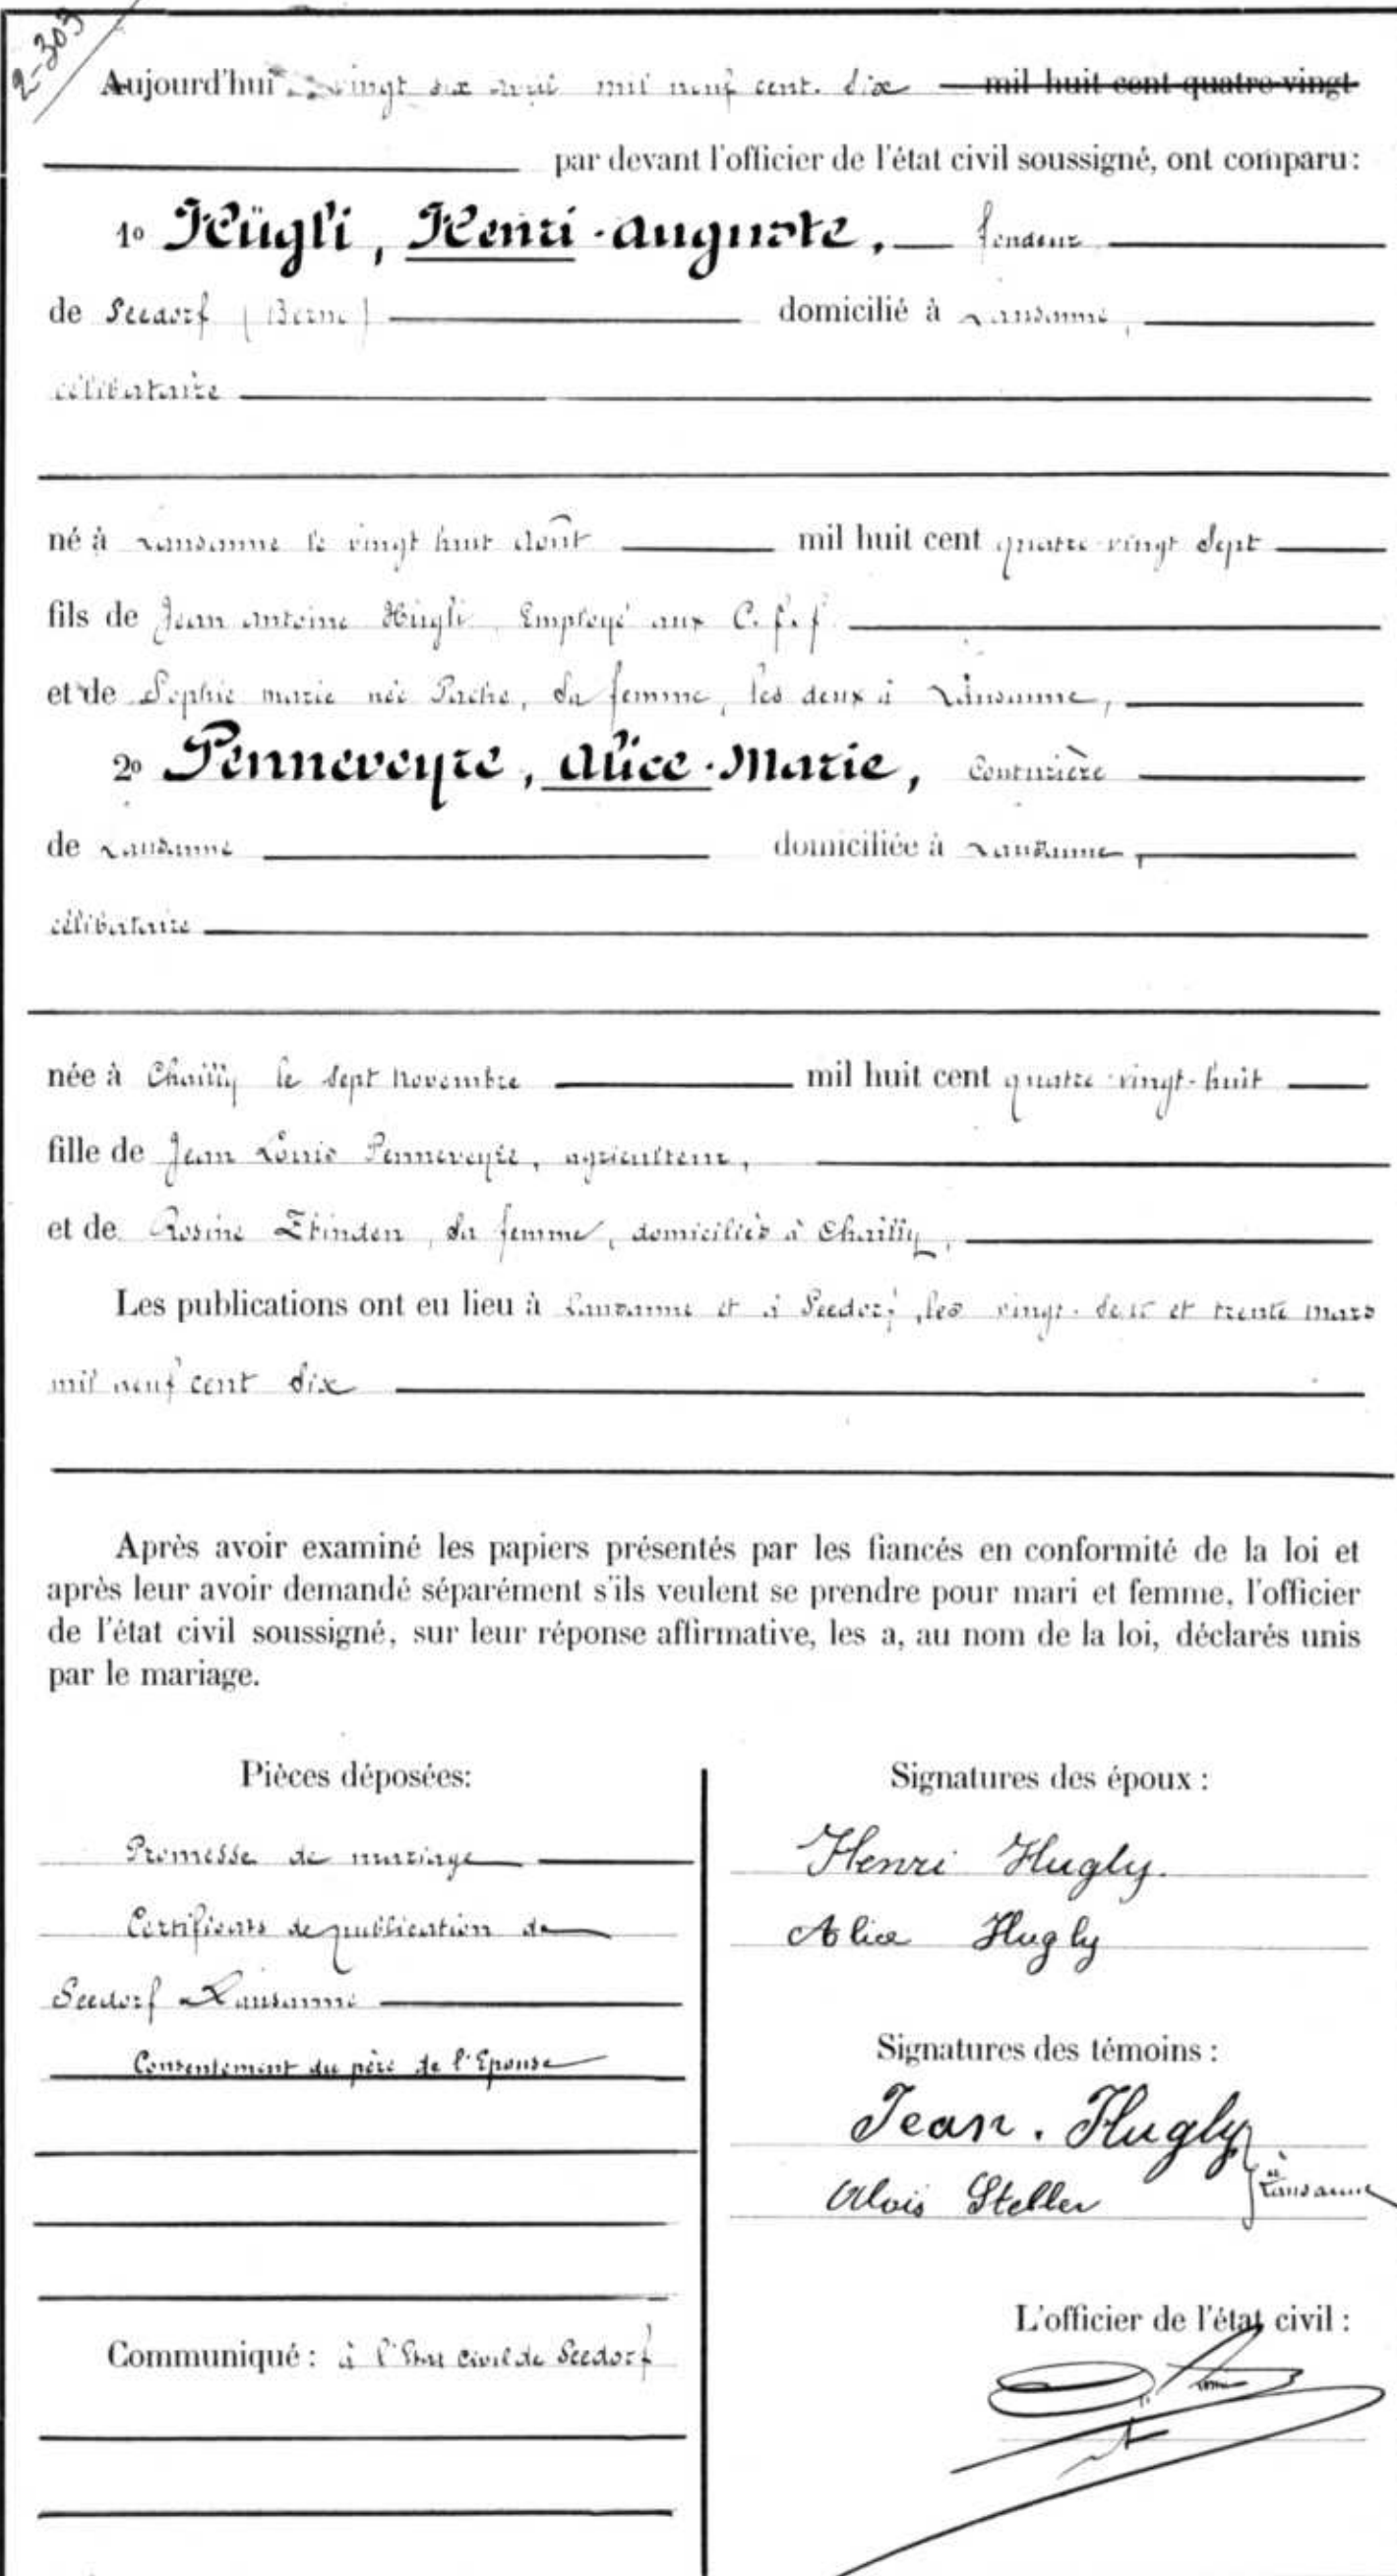 2-303
Aujourd'hui vingt six avril mil neuf cent dix mil huit cent quatre-vingt
par devant l'officier de l'état civil soussigné, ont comparu:
1º Hügli, Henri-Auguste, fondeur
de Seedorf (Berne) domicilié à Lausanne,
célibataire
né à Lausanne le vingt huit Août mil huit cent quatre-vingt sept
fils de Jean Antoine Hügli Employé aux C.f.f
et de Sophie Marie née Pache, sa femme, les deux à Lausanne,
2º Penneveyre, Alice-Marie, Couturière
de Lausanne domiciliée à Lausanne,
célibataire
née à Chailly le sept Novembre mil huit cent quatre-vingt-huit
fille de Jean Louis Penneveyre, agriculteur,
et de Rosine Zbinden, sa femme, domiciliés à Chailly,
Les publications ont eu lieu à Lausanne et à Seedorf, les vingt- et trente mars
mil neuf cent dix
Après avoir examiné les papiers présentés par les fiancés en conformité de la loi et
après leur avoir demandé séparément s'ils veulent se prendre pour mari et femme, l'officier
de l'état civil soussigné, sur leur réponse affirmative, les a, au nom de la loi, déclarés unis
par le mariage.
Pièces déposées:
Promesse de mariage
Certificats de publication de
Seedorf Lausanne
Consentement du père de l'Epouse
Communiqué: à l'Etat civil de Seedorf
Signatures des époux:
Henri Hugly.
Alice Hugly
Signatures des témoins:
Jean. Hugly
Alois Steller
à Lausanne
L'officier de l'état civil: